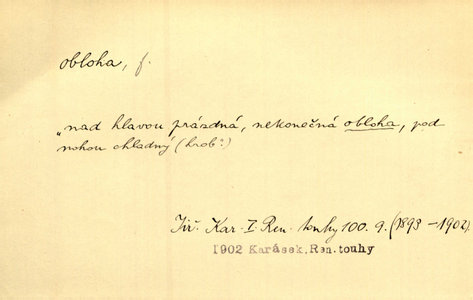 obloha, f.
„nad hlavou prázdná, nekonečná obloha, pod
nohou chladný (hrob?)
Jiř. Kar. I. Ren. touhy 100. 9. (1893–1902).
1902 Karásek, Ren.touhy